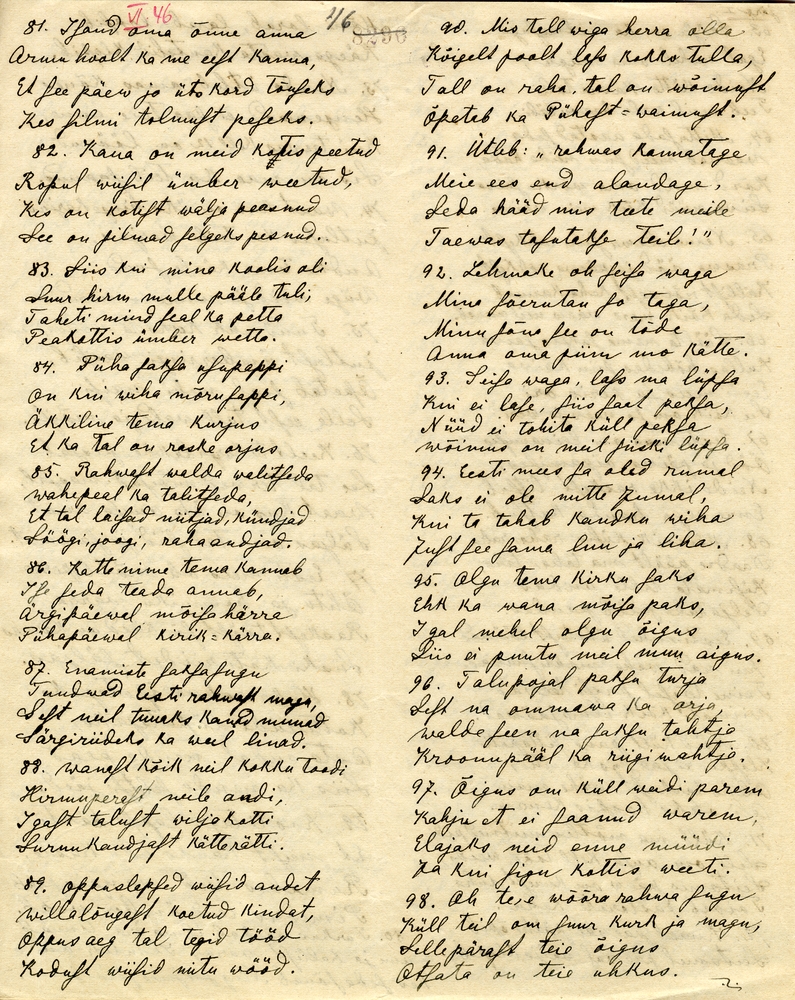 VI 46
46
5290
81. Isand oma õnne anna
Armu hoolt ka me eest kanna,
Et see päew jo üts kord tõuseks
Kes silmi tolmust peseks.
82. Kaua on meid kotis peetud
Ropul wiisil ümber weetud,
Kes on kotist wälja peasnud
See on silmad selgeks pesnud.
83. Siis kui mina koolis oli
Suur hirm mulle pääle tuli,
Taheti mind seal ka petta
Peakottis ümber wetta.
84. Püha saksa usupappi
On kui wiha mõru sappi,
Äkkiline tema kurjus
Et ka tal on raske orjus
85. Rahwast walda walitseda
wahepeal ka talitseda,
Et tal laisad niitjad, kündjad
Söögi, joogi, raha andjad.
86. Katte nime tema kannab
Ise seda teada annab,
Ärgipäewal mõisa härra
Pühapäewal kirik-härra.
87. Enamiste saksa sugu
Tundwad Eesti rahwast magu,
Sest neil tuuaks kanad munad
Särgiriideks ka weel linad.
88. wanast kõik neil kokku toodi
Hirmu perast neile andi,
Igast talust wilja kotti
Surnukandjast kätterätti.
89. oppuslapsed wiisid andet
willalõngast koetud kindat,
Oppus aeg tal tegid tööd
Kodust wiisid mitu wööd.
90. Mis tall wiga herra olla
Kõigelt poolt lass kokko tulla,
Tall on raha, tal on wõimust
Õpetab ka Pühast-waimust.
91. Ütleb: „rahwas kannatage
Meie ees end alandage,
Seda hääd mis teete meile
Taewas tasutakse teile!"
92. Lehmake oh seisa waga
Mina sõerutan so taga,
Minu sõna see on tõde
Anna oma piim mo kätte.
93. Seisa waga, lass ma lüpsa
Kui ei lase, siis saat peksa,
Nüüd ei tohita küll peksa
wõimus on meil siiski lüpsa.
94. Eesti mees sa oled rumal
Saks ei ole mitte Jumal,
Kui ta tahab kandku wiha
Just see sama luu ja liha.
95. Olgu tema kirku saks
Ehk ka wana mõisa paks,
Igal mehel olgu õigus
Siis ei puutu meil muu aigus.
96. Talupojal paksu turja
Sest na ommawa ka orja,
walde seen na saksu tahtja
Kroonupääl ka riigi wahtja.
97. Õigus om küll weidi parem
Kahju et ei saanud warem,
Elajaks neid enne müüdi
Ja kui sigu kottis weeti.
98. Oh teie wõõra rahwa sugu
Küll teil om suur kurk ja magu,
Selle pärast teie õigus
Otsata on teie uhkus.